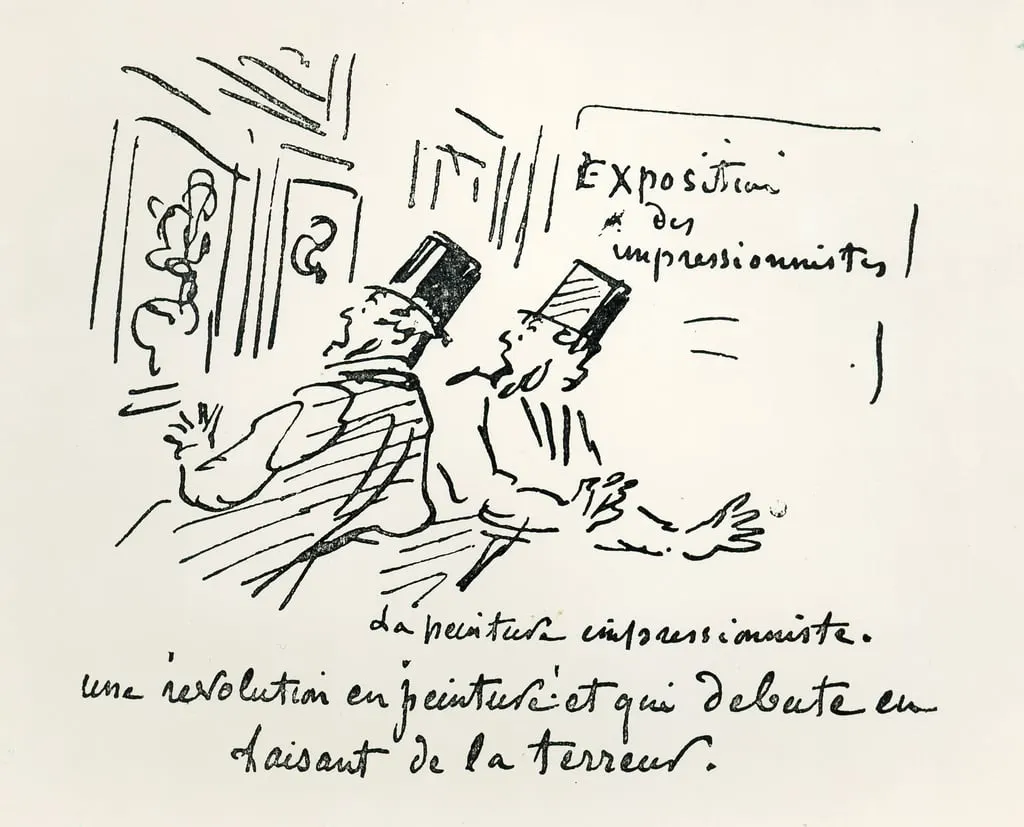 Exposition
des
impressionnistes
La peinture impressionniste.
une révolution en peinture! et qui debute en
faisant de la terreur.